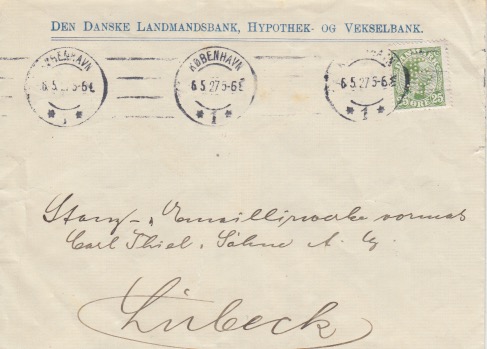 DEN DANSKE LANDMANDSBANK, HYPOTHEK- OG VEKSELBANK.
KØBENHAVN
6.5.27 5-6E
* 1 *
KØBENHAVN
6.5.27 5-6E
* 1 *
6.5.27 5-6E
* 1 *
ØRE 25
Stanz- & Emaillirwerke vormals
Carl Thiel & Söhne A. G.
Lübeck